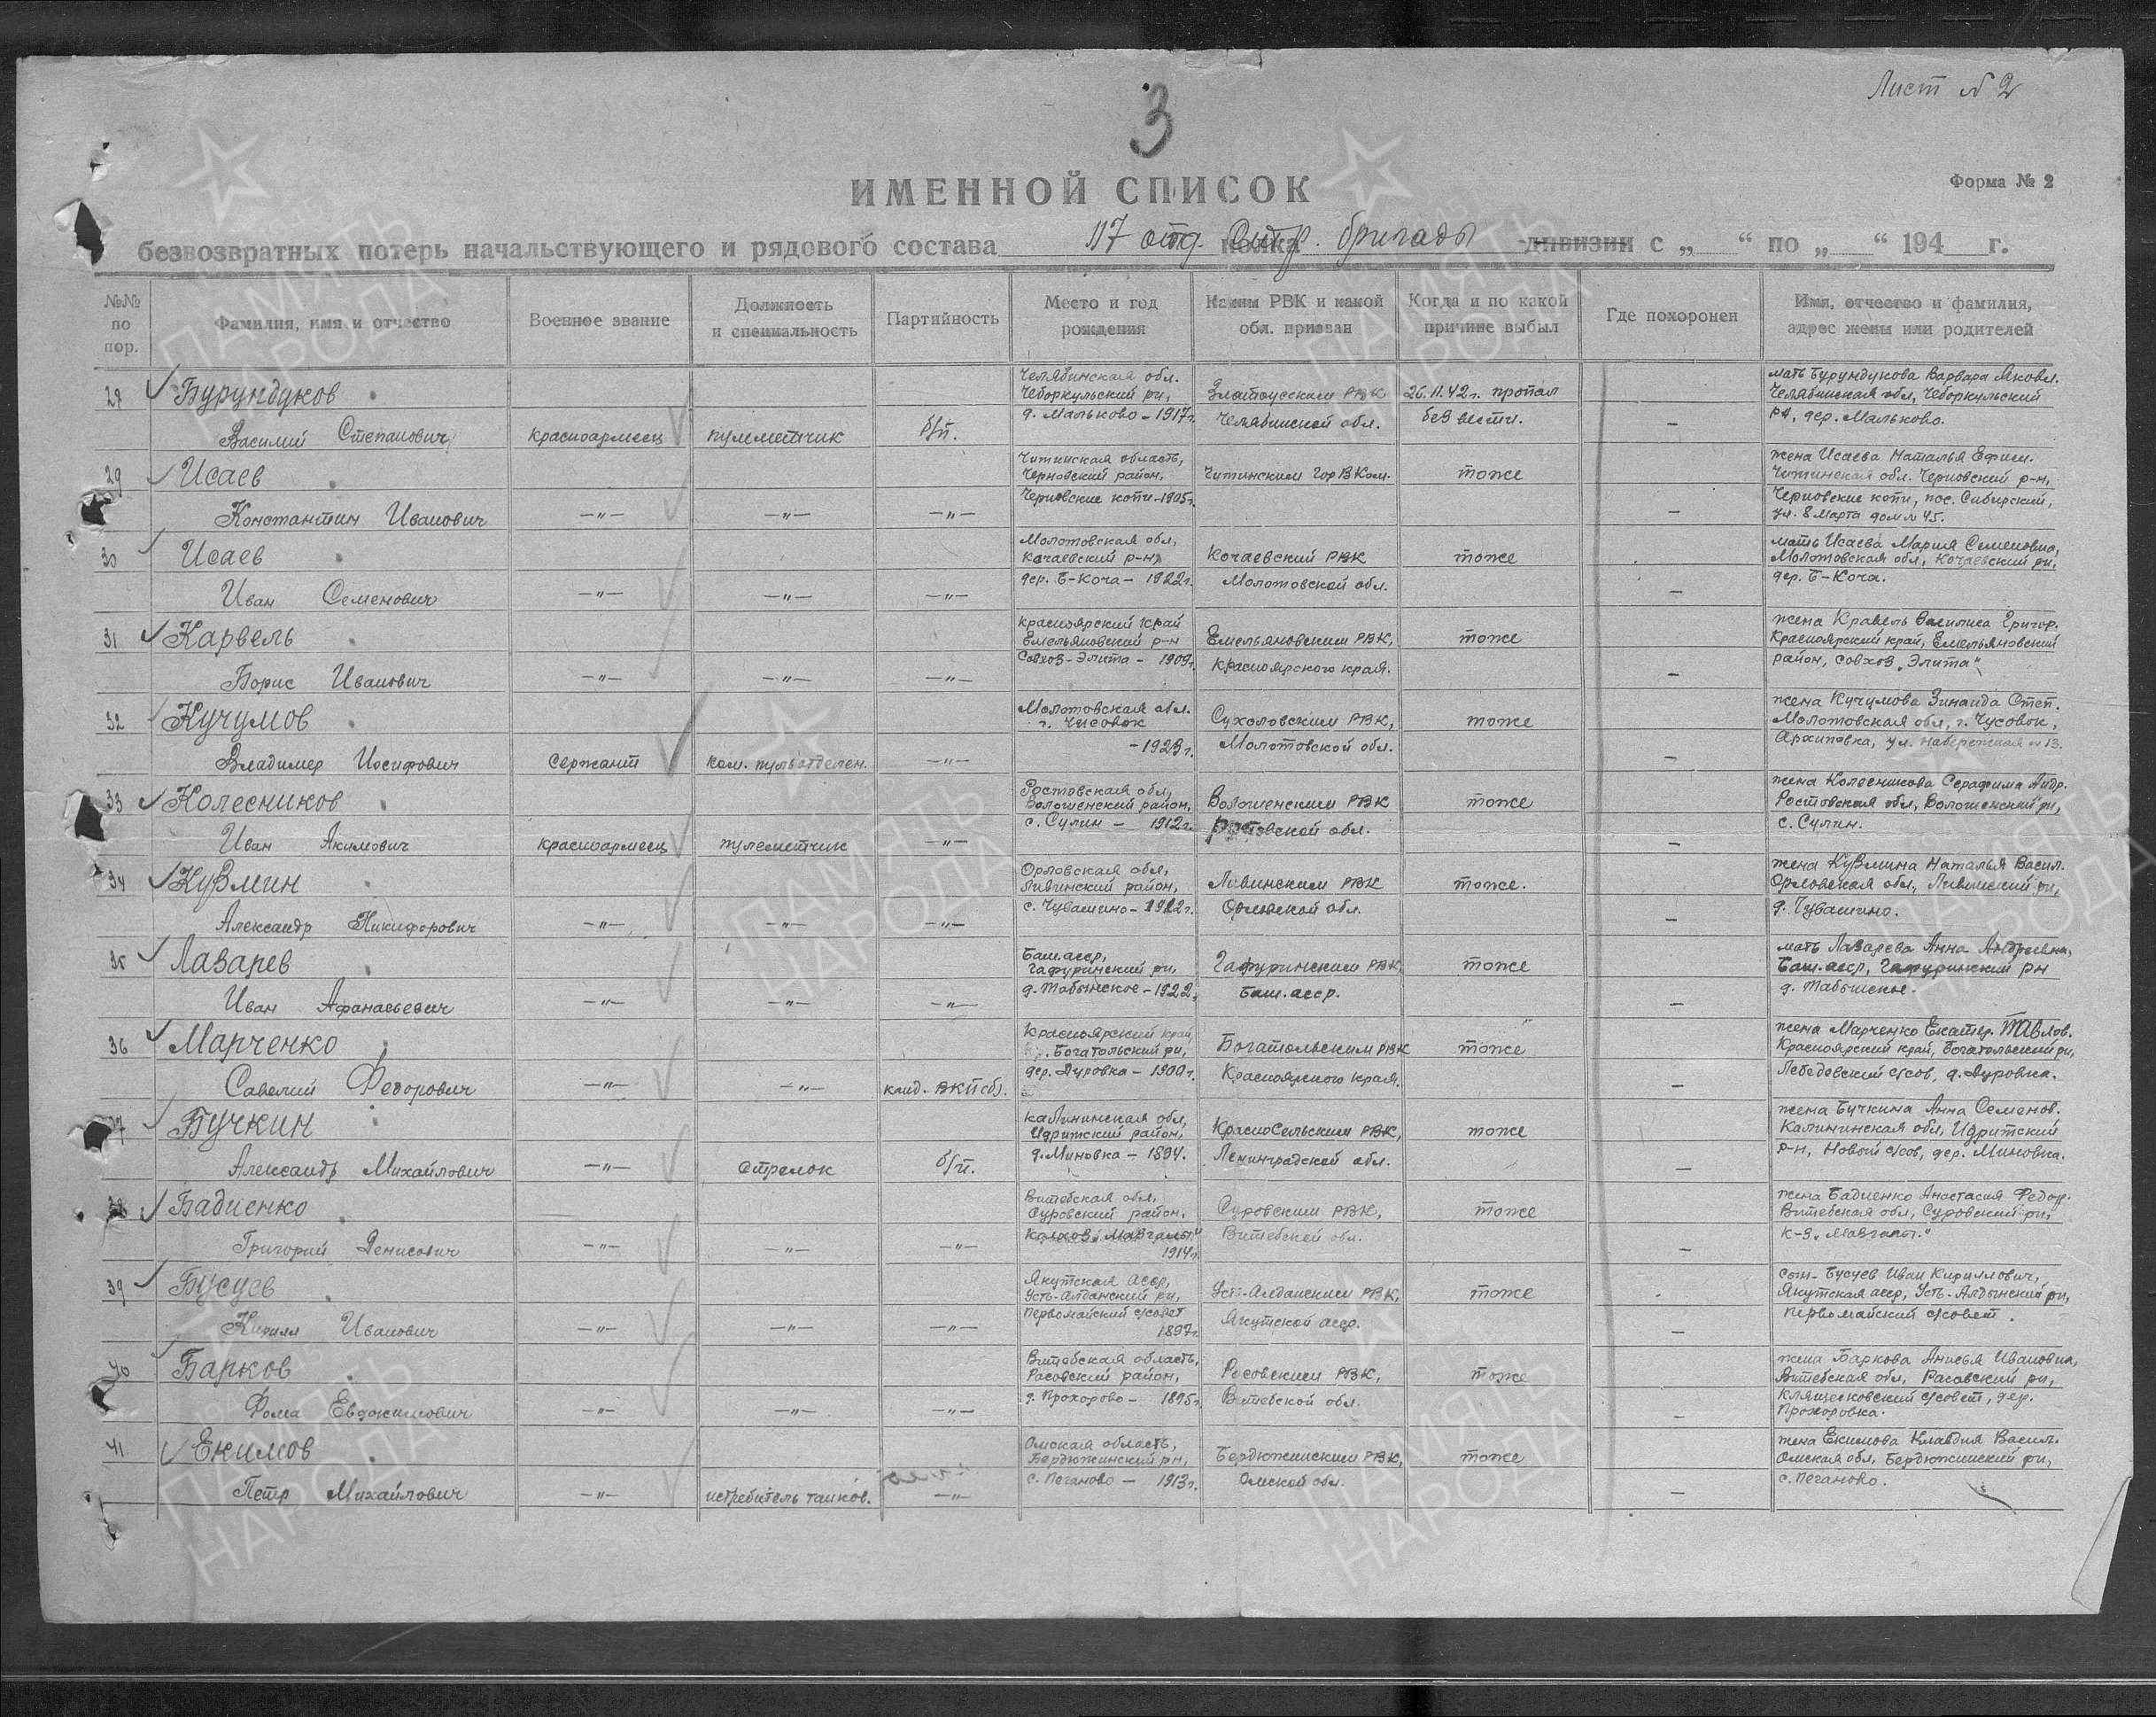 Лист № 2
3
ИМЕННОЙ СПИСОК
Форма № 2
безвозвратных потерь начальствующего и рядового состава 117 отд. стр. бригады полка дивизии с „ “ по „ “ 194 г.
№№ по пор.
Фамилия, имя и отчество
Военное звание
Должность и специальность
Партийность
Место и год рождения
Каким РВК и какой обл. призван
Когда и по какой причине выбыл
Где похоронен
Имя, отчество и фамилия, адрес жены или родителей
Бурундуков
Василий Степанович
красноармеец
пулеметчик
б/п.
Челябинская обл.
Чеборкульский рн,
д. Мальково - 1917г.
Златоусским РВК
Челябинской обл.
26.11.42г. пропал
без вести.
–
мать Бурундукова Варвара Яковл.
Челябинская обл, Чеборкульский
рн, дер. Мальково.
29
Исаев
Константин Иванович
–"–
–"–
–"–
Читинская область,
Черновский район,
Черновские копи-1905г.
Читинским ГорВКом.
тоже
–
жена Исаева Наталья Ефим.
Читинская обл. Черновский р-н,
Черновские копи, пос. Сибирский,
ул. 8 марта дом № 45.
30
Исаев
Иван Семенович
–"–
–"–
–"–
Молотовская обл,
Кочаевский р-н,
дер. Б-Коча - 1922г.
Кочаевский РВК
Молотовской обл.
тоже
–
мать Исаева Мария Семеновна,
Молотовская обл, Кочаевский рн,
дер. Б-Коча.
31
Карвель
Борис Иванович
–"–
–"–
–"–
Красноярский край
Емельяновский р-н
Совхоз-Элита - 1909г.
Емельяновским РВК,
Красноярского края.
тоже
–
жена Кравель Василиса Григор.
Красноярский край, Емельяновский
район, совхоз „Элита“
32
Кучумов
Владимер Иосифович
Сержант
ком. пульотделен.
–"–
Молотовская обл.
г. Чусовок
-1923г.
Сухоловским РВК,
Молотовской обл.
тоже
–
жена Кучумова Зинаида Степ.
Молотовская обл, г. Чусовок,
Архиповка, ул. набережная № 13.
33
Колесников
Иван Акимович
красноармеец
пулеметчик
–"–
Ростовская обл,
Волошенский район,
с. Сулин - 1912г.
Волошенским РВК
Ростовской обл.
тоже
–
жена Колесникова Серафима Андр.
Ростовская обл, Волошенский рн,
с. Сулин.
34
Кузмин
Александр Никифорович
–"–
–"–
–"–
Орловская обл,
Ливинский район,
с. Чувашино - 1922г.
Ливинским РВК
Орловской обл.
тоже.
–
жена Кузмина Наталья Васил.
Орловская обл, Ливинский рн,
д. Чувашино.
35
Лазарев
Иван Афанасьевич
–"–
–"–
–"–
Баш.асср,
Гафуринский рн,
д. Табынское - 1922г.
Гафуринским РВК,
Баш.асср.
тоже
–
мать Лазарева Анна Андреевна,
Баш.асср, Гафуринский рн
д. Табынское.
36
Марченко
Савелий Федорович
–"–
–"–
канд. ВКП(б).
Красноярский край
Богатольский рн,
дер. Дуровка - 1900г.
Богатольским РВК
Красноярского края.
тоже
–
жена Марченко Екатер. Павлов.
Красноярский край, Богатольский рн,
Лебедевский с/сов, д. Дуровка.
Бучкин
Александр Михайлович
–"–
стрелок
б/п.
Калининская обл,
Идритский район,
д. Миновка - 1894.
КрасноСельским РВК,
Ленинградской обл.
тоже
–
жена Бучкина Анна Семенов.
Калининская обл, Идритский
р-н, Новой с/сов, дер. Миновка.
38
Бадиенко
Григорий Денисович
–"–
–"–
–"–
Витебская обл,
Суровский район.
1914г.
Суровским РВК,
Витебской обл.
тоже
–
жена Бадиенко Анастасия Федор.
Витебская обл, Суровский рн,
39
Бусуев
Кирилл Иванович
–"–
–"–
–"–
Якутская асср,
Усть-Алданский рн,
первомайский с/совет
1897г.
Уст-Алданским РВК,
Якутской асср.
тоже
–
сын-Бусуев Иван Кириллович,
Якутская асср, Усть-Алданский рн,
первомайский с/совет.
40
Барков
Фома Евдокимович
–"–
–"–
–"–
Витебская область,
Расовский район,
д. Прохорово - 1895г.
Росовским РВК,
Витебской обл.
тоже
–
жена Баркова Анисья Ивановна,
Витебская обл, Расовский рн,
с/совет, дер.
Прохоровка.
41
Екимов
Петр Михайлович
–"–
истребитель танков.
–"–
Омская область,
Бердюжинский рн,
с. Пеганово - 1913г.
Бердюжинским РВК,
Омской обл.
тоже
–
жена Екимова Клавдия Васил.
Омская обл, Бердюжинский рн,
с. Пеганово.
ПАМЯТЬ НАРОДА
ПАМЯТЬ НАРОДА
ПАМЯТЬ НАРОДА
ПАМЯТЬ НАРОДА
ПАМЯТЬ НАРОДА
ПАМЯТЬ НАРОДА